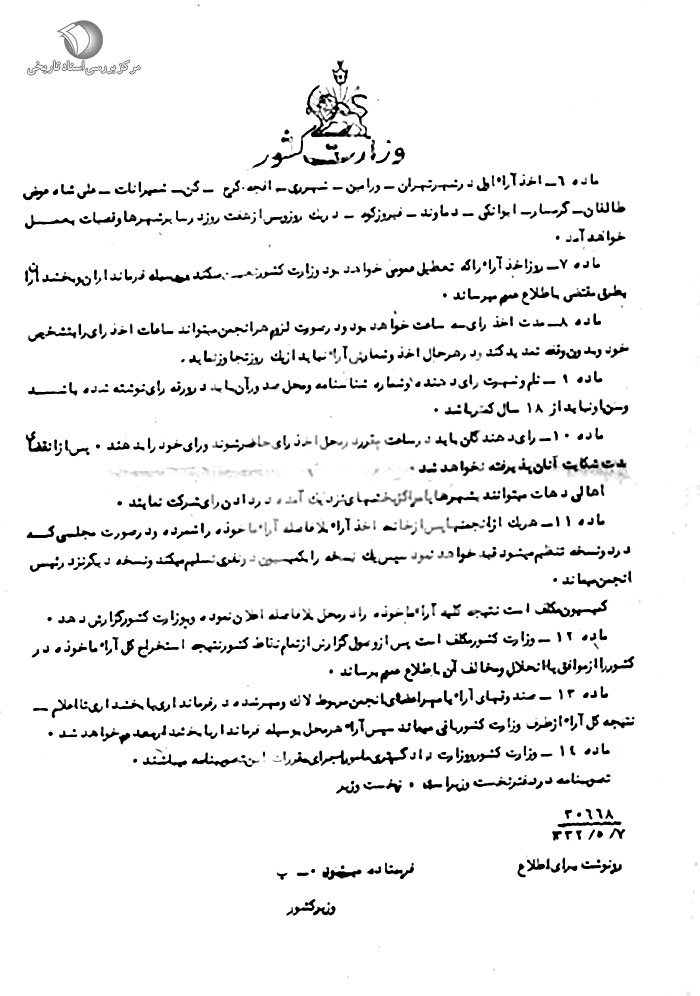 مرکز بررسی اسناد تاریخی
وزارت کشور
ماده ۶ـ اخذ آراء اولی در شهر تهران ـ ورامین ـ شهرری ـ افجه ـ کرج ـ کن ـ شمیرانات ـ علی شاه عوض
طالقان ـ گرمسار ـ ایوانکی ـ دماوند ـ فیروزکوه ـ در یک روز و پس از هفت روز در سایر شهرها و قصبات بعمل
خواهد آمد ۰
ماده ۷ـ روز اخذ آراء را که تعطیل عمومی خواهد بود وزارت کشور تعیین میکند و بوسیله فرمانداران و بخشداران
بطرق مقتضی باطلاع عموم میرساند ۰
ماده ۸ـ مدت اخذ رای سه ساعت خواهد بود و در صورت لزوم هر انجمن میتواند ساعات اخذ رای را بتشخیص
خود و بدون وقفه تمدید کند و در هر حال اخذ و شمارش آراء نباید از یک روز تجاوز نماید ۰
ماده ۹ ـ نام و شهرت رای دهنده و شماره شناسنامه و محل صدور آن باید در ورقه رای نوشته شده باشد
و سن او نباید از ۱۸ سال کمتر باشد ۰
ماده ۱۰ـ رای دهندگان باید در ساعت مقرر در محل اخذ رای حاضر شوند و رای خود را بدهند ۰ پس از انقضای
مدت شکایت آنان پذیرفته نخواهد شد ۰
اهالی دهات میتوانند بشهرها یا مراکز بخشهای نزدیک آمده در دادن رای شرکت نمایند ۰
ماده ۱۱ـ هریک از انجمنها پس از خاتمه اخذ آراء بلافاصله آراء ماخوذه را شمرده و در صورت مجلسی که
در دو نسخه تنظیم میشود قید خواهد نمود سپس یک نسخه را بکمیسیون دو نفری تسلیم میکند و نسخه دیگر نزد رئیس
انجمن میماند ۰
کمیسیون مکلف است نتیجه کلیه آراء ماخوذه را در محل بلافاصله اعلان نموده و بوزارت کشور گزارش دهد ۰
ماده ۱۲ ـ وزارت کشور مکلف است پس از وصول گزارش از تمام نقاط کشور نتیجه استخراج کل آراء ماخوذه در
کشور را از موافق با انحلال و مخالف آن باطلاع عموم برساند ۰
ماده ۱۳ ـ صندوقهای آراء با مهر اعضای انجمن مربوط لاک و مهر شده در فرمانداری یا بخشداری تا اعلام ـ
نتیجه کل آراء از طرف وزارت کشور باقی میماند سپس آراء هر محل بوسیله فرماندار یا بخشدار معدوم خواهد شد ۰
ماده ۱۴ ـ وزارت کشور و وزارت دادگستری مامور اجرای مقررات این تصویبنامه میباشند ۰
تصویبنامه در دفتر نخست وزیر است ۰ نخست وزیر
۲۰۶۶۸
۱۳۳۲/۵/۷
رونوشت برای اطلاع فرستاده میشود ۰ ـ پ
وزیر کشور